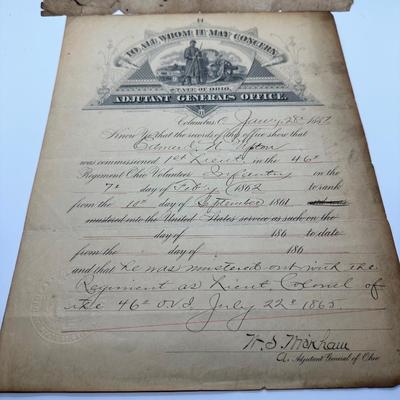 TO ALL WHOM IT MAY CONCERN.
STATE OF OHIO,
ADJUTANT GENERAL'S OFFICE.
Columbus, O.
Know Ye that the records of this office show that
Edmund N. Upton
was commissioned 1st Lieut. in the 46th
Regiment Ohio Volunteer Infantry on the
7th day of Feby 1862 to rank
from the 10th day of September 1861
mustered into the United States service as such on the
day of 186 to date
from the day of 186
and that he was mustered out with the
Regiment as Lieut Colonel of
the 46th O.V.I. July 22d 1865.
Adjutant General of Ohio